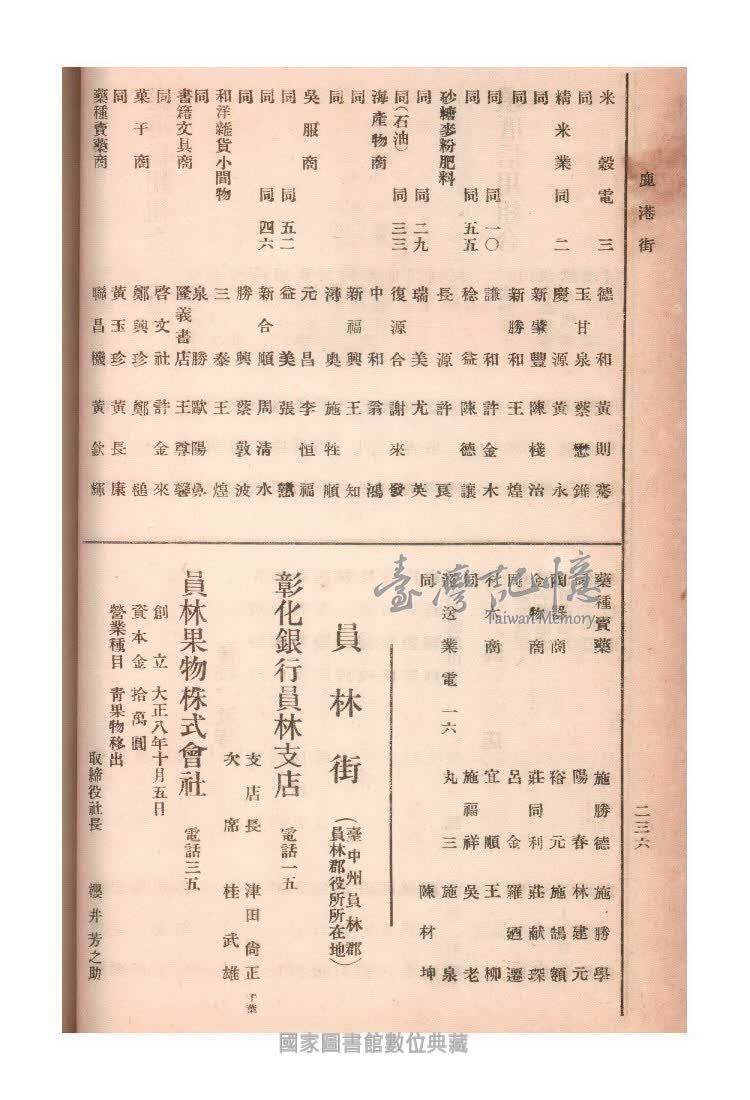 鹿港街
二三六
米穀 電三 德和 黃則騫
同 玉甘泉 蔡懋
精米業 同二 慶源 黃永
同 新肇豐 陳棧治
同 新勝和 王煌
同 同一〇 謙和 許金木
同 同五五 稔益 陳德讓
砂糖麥粉肥料 長源 許
同 同二九 瑞美 尤英
同(石油) 同三三 復源合 謝來發
海產物商 中和 翁鴻
同 新福興 王知
同 溥奥 施牲順
吳服商 元昌 李恒福
同 同五二 益美 張
同 同四六 新合順 周清水
同 勝興 蔡敦波
和洋雜貨小間物 三泰 王煌
同 泉勝 歐陽
書籍文具商 隆義書店 王尊馨
同 啓文社 許金來
菓子商 鄭興珍 鄭槌
同 黃玉珍 黃長康
藥種賣藥商 聯昌機 黃欽輝
藥種賣藥 施勝德 施勝學
同 陽春 林建元
商 裕元 施鵠額
金物商 莊同利 莊献琛
呂金 羅迺遷
材木商 宜順 王柳
施福祥 吳老
運送業 電一六 丸三 施泉
同 陳材坤
員林街 (臺中州員林郡員林郡役所所在地)
彰化銀行員林支店 電話一五
支店長 津田尙正 千葉
次席 桂武雄
員林果物株式會社 電話三五
創立 大正八年十月五日
資本金 拾萬圓
營業種目 靑果物移出
取締役社長 櫻井芳之助
臺灣記憶
Taiwan Memory
國家圖書館數位典藏